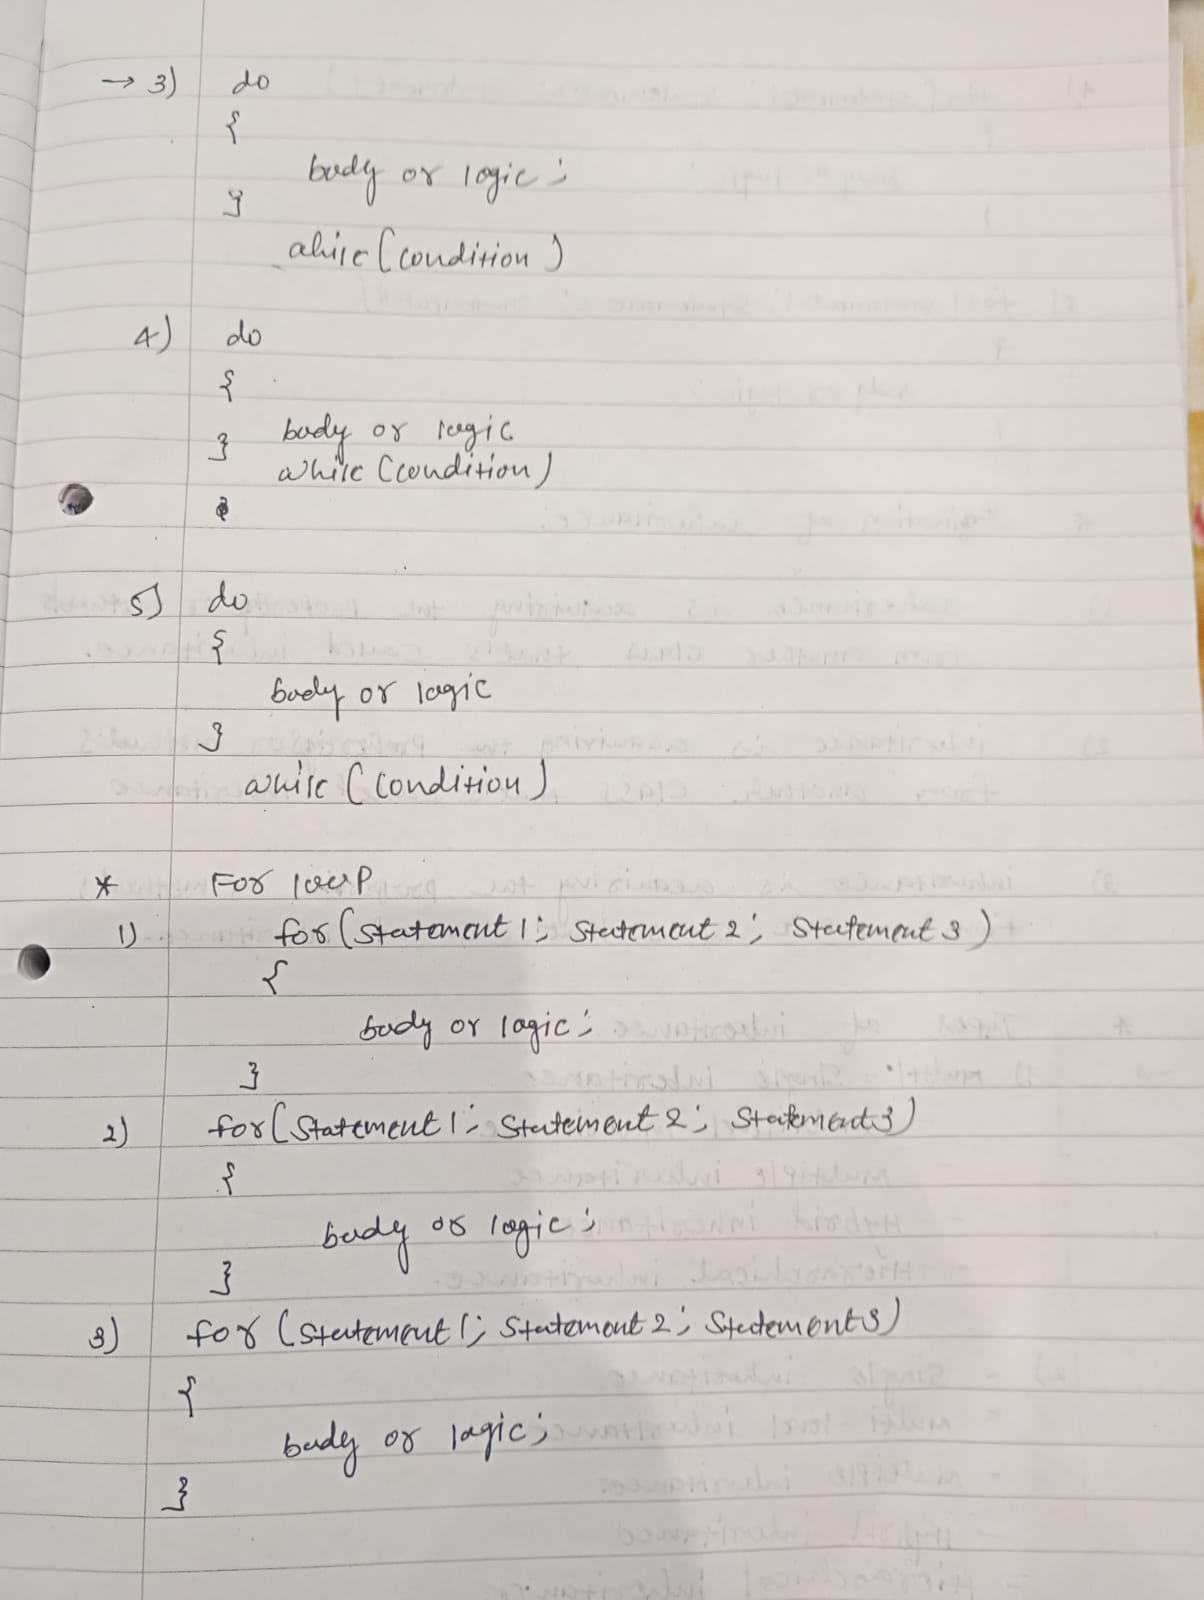 → 3) do
{
body or logic;
}
while (condition)
4) do
{
body or logic
}
while (condition)
5) do
{
body or logic
}
while (condition)
* For loop
1) for (Statement 1; Statement 2; Statement 3)
{
body or logic;
}
2) for (Statement 1; Statement 2; Statement 3)
{
body or logic;
}
3) for (Statement 1; Statement 2; Statement 3)
{
body or logic;
}